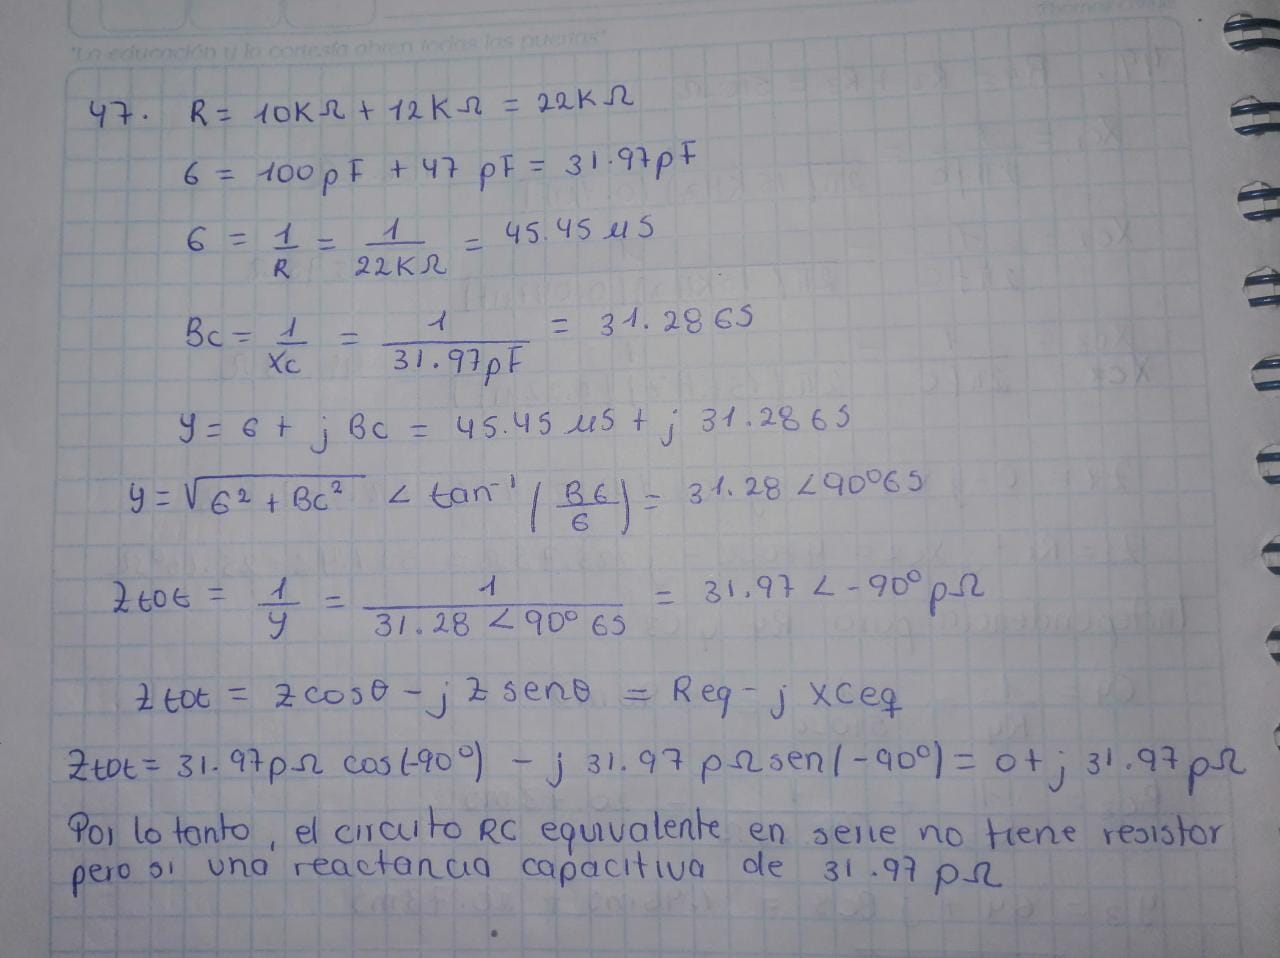 "La educación y la cortesía abren todas las puertas"
47. R = 10KΩ + 12KΩ = 22KΩ
6 = 100pF + 47 pF = 31.97pF
6 = 1/R = 1/22KΩ = 45.45 μS
Bc = 1/Xc = 1/31.97pF = 31.28 6S
y = 6 + j Bc = 45.45 μS + j 31.28 6S
y = √6² + Bc² < tan⁻¹ (B6/6) = 31.28 <90° 6S
Ztot = 1/y = 1/31.28 <90° 6S = 31.97 < -90° pΩ
Ztot = Z cosθ - j Z senθ = Req - j XCeq
Ztot = 31.97pΩ cos(-90°) - j 31.97 pΩ sen(-90°) = 0 + j 31.97 pΩ
Por lo tanto, el circuito RC equivalente en serie no tiene resistor
pero si una reactancia capacitiva de 31.97 pΩ